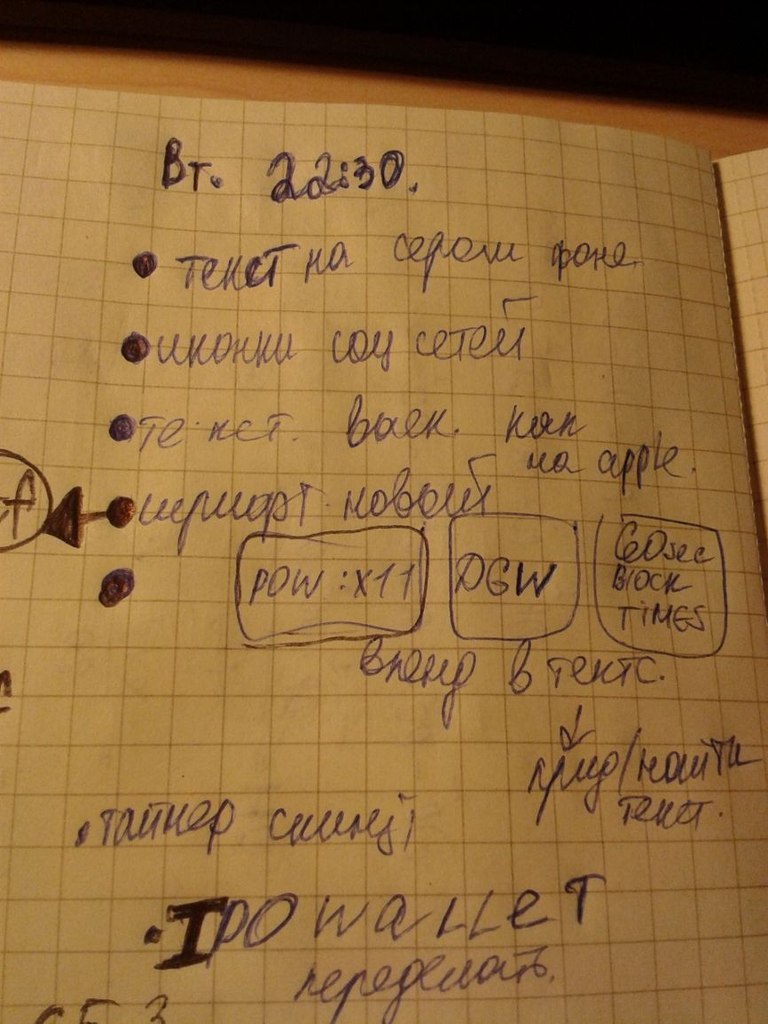 Вт. 22:30.
текст на сером фоне
иконки соц сетей
текст. как
на apple.
шрифт новый
POW:X11 DGW 60sec
BLOCK
TIMES
в текст.
найти
текст.
IPO WALLET
переделать.